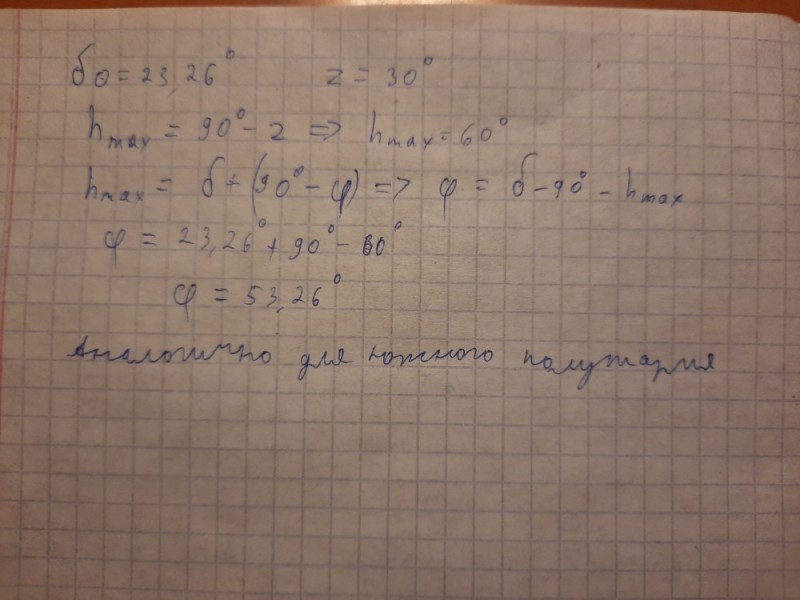 δ₀ = 23,26° z = 30°
hmax = 90° - z => hmax = 60°
hmax = δ + (90° - φ) => φ = δ - 90° - hmax
φ = 23,26° + 90° - 60°
φ = 53,26°
Аналогично для южного полушария